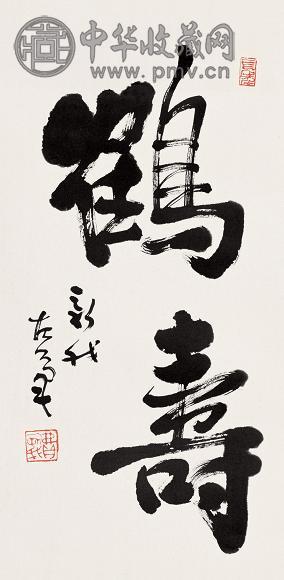 中华收藏网
www.pmv.cn
鶴壽
新我